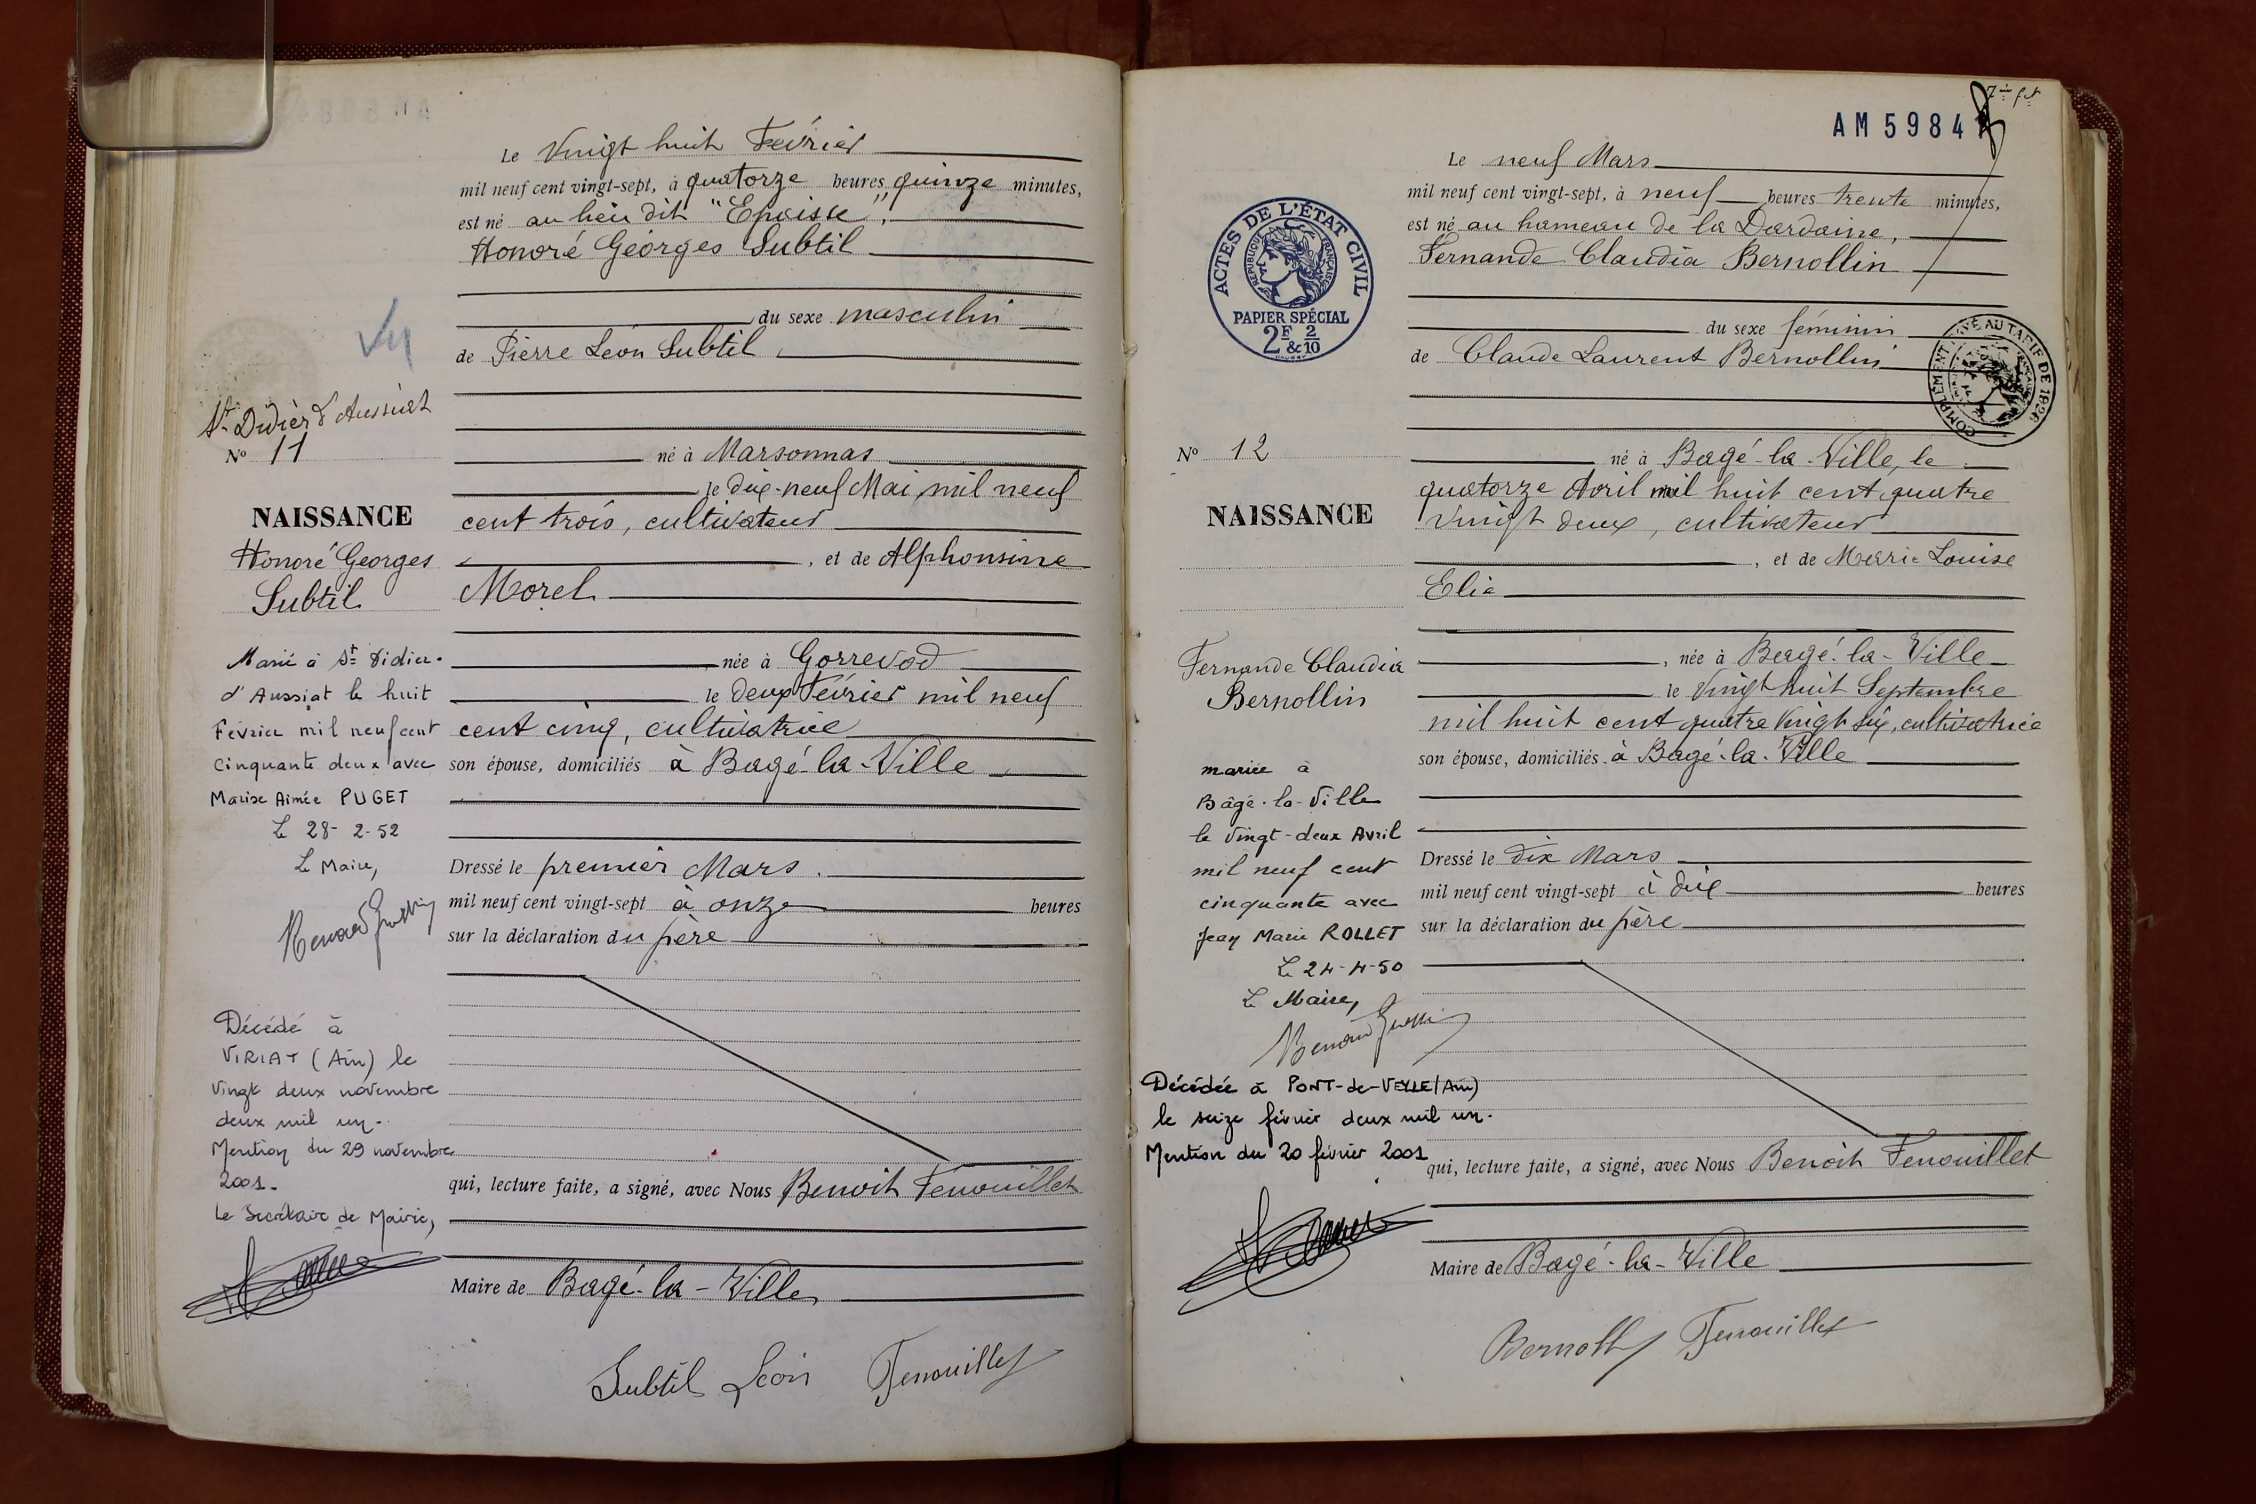 Le Vingt huit Février
mil neuf cent vingt-sept, à quatorze heures quinze minutes,
est né au lieu dit "Epaisse",
Honoré Géorges Subtil
du sexe masculin
de Pierre Léon Subtil,
St Didier d'Aussiat
No 11
né à Marsonnas
le dix-neuf Mai mil neuf
NAISSANCE
cent trois, cultivateur
Honoré Georges
Subtil
, et de Alphonsine
Morel
Marié à St Didier-
d'Aussiat le huit
Février mil neuf cent
cinquante deux avec
Marise Aimée PUGET
Le 28-2-52
Le Maire,
née à Gorrevod
le deux Février mil neuf
cent cinq, cultivatrice
son épouse, domiciliés à Bagé-la-Ville
Dressé le premier Mars
mil neuf cent vingt-sept à onze heures
sur la déclaration du père
Décédé à
VIRIAT (Ain) le
vingt deux novembre
deux mil un.
Mention du 29 novembre
2001.
Le Secrétaire de Mairie,
qui, lecture faite, a signé, avec Nous Benoit Fenouillet
Maire de Bagé-la-Ville
Subtil Léon Fenouillet
AM 5984
Le neuf Mars
mil neuf cent vingt-sept, à neuf heures trente minutes,
est né au hameau de la Dardaine,
Fernande Claudia Bernollin
ACTES DE L'ÉTAT CIVIL
RÉPUBLIQUE FRANÇAISE
PAPIER SPÉCIAL
2F & 2/10
du sexe féminin
de Claude Laurent Bernollin
COMPLÉMENT PAYÉ AU TARIF DE 1926
No 12
né à Bagé-la-Ville, le
quatorze Avril mil huit cent quatre
NAISSANCE
vingt deux, cultivateur
, et de Marie Louise
Elie
Fernande Claudia
Bernollin
, née à Bagé-la-Ville
le Vingt huit Septembre
mil huit cent quatre vingt six, cultivatrice
son épouse, domiciliés à Bagé-la-Ville
mariée à
Bâgé-la-Ville
le vingt-deux Avril
mil neuf cent
cinquante avec
Jean Marie ROLLET
Le 24-4-50
Le Maire,
Dressé le dix Mars
mil neuf cent vingt-sept à dix heures
sur la déclaration du père
Décédée à PONT-de-VEYLE (Ain)
le seize février deux mil un.
Mention du 20 février 2001
qui, lecture faite, a signé, avec Nous Benoit Fenouillet
Maire de Bagé-la-Ville
Fenouillet